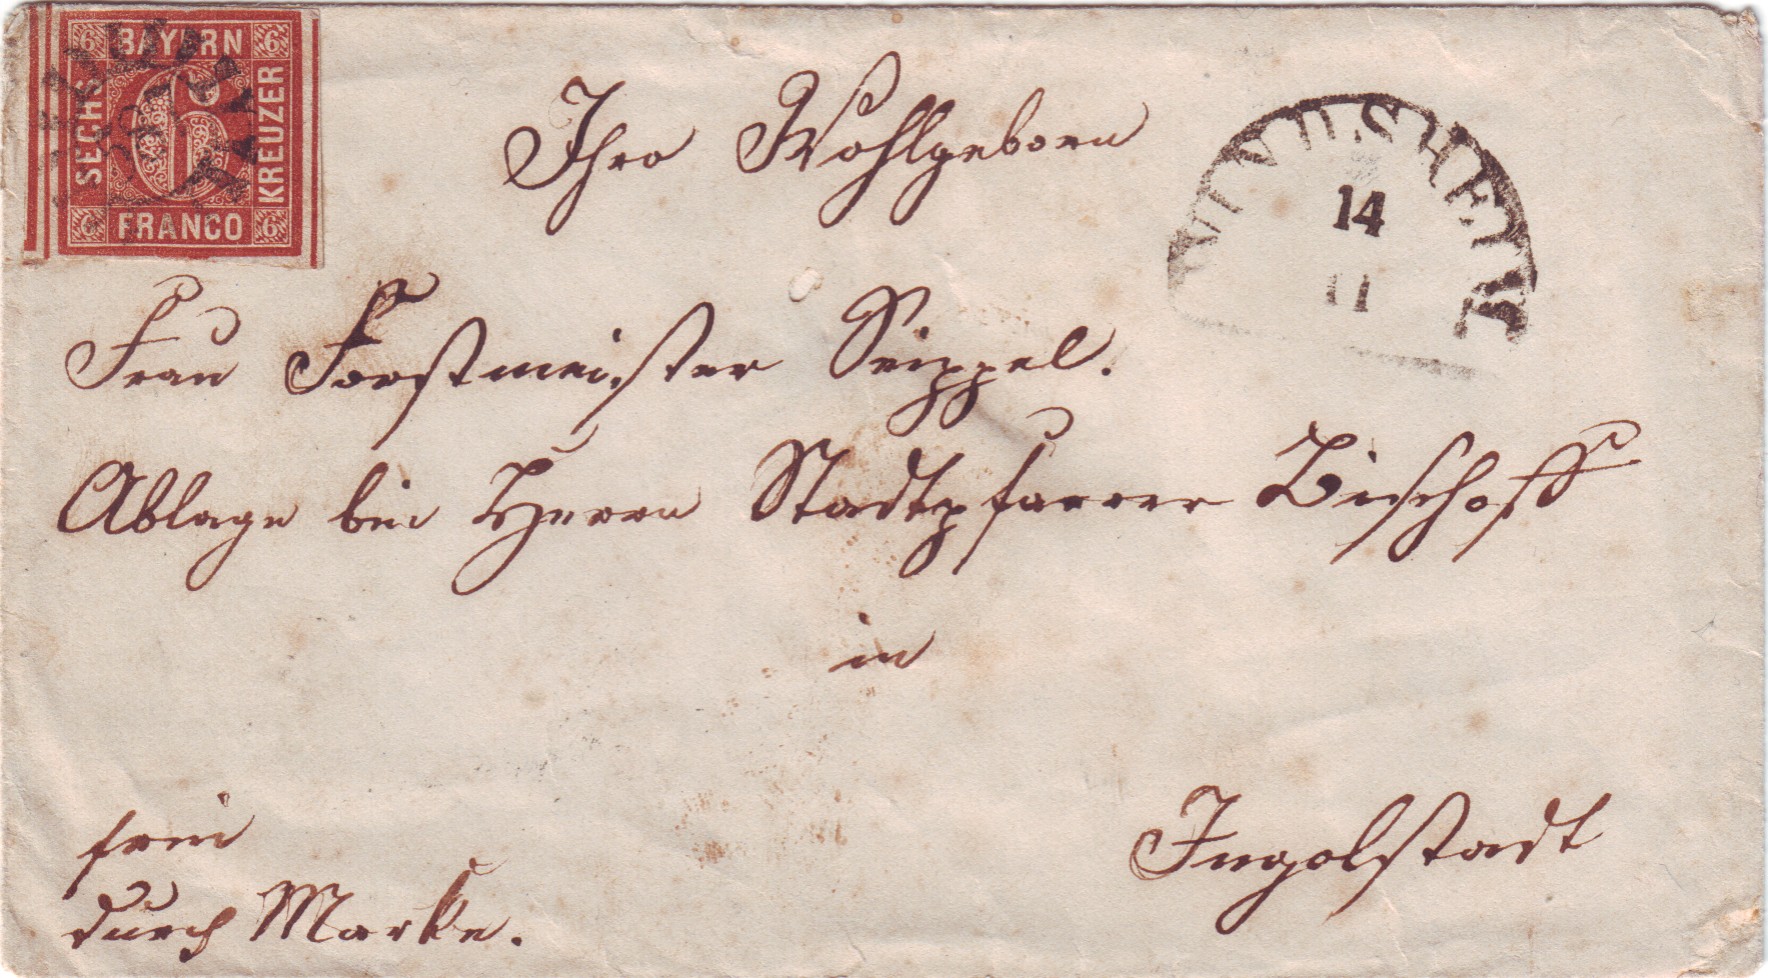 6 BAYERN 6
SECHS
6
KREUZER
6 FRANCO 6
WINDSHEIM
14
11
Ihro Wohlgeborn
Frau Forstmeister Seippel.
Ablage bei Herrn Stadtpfarrer Bischoff
in
Ingolstadt
frei
durch Marke.